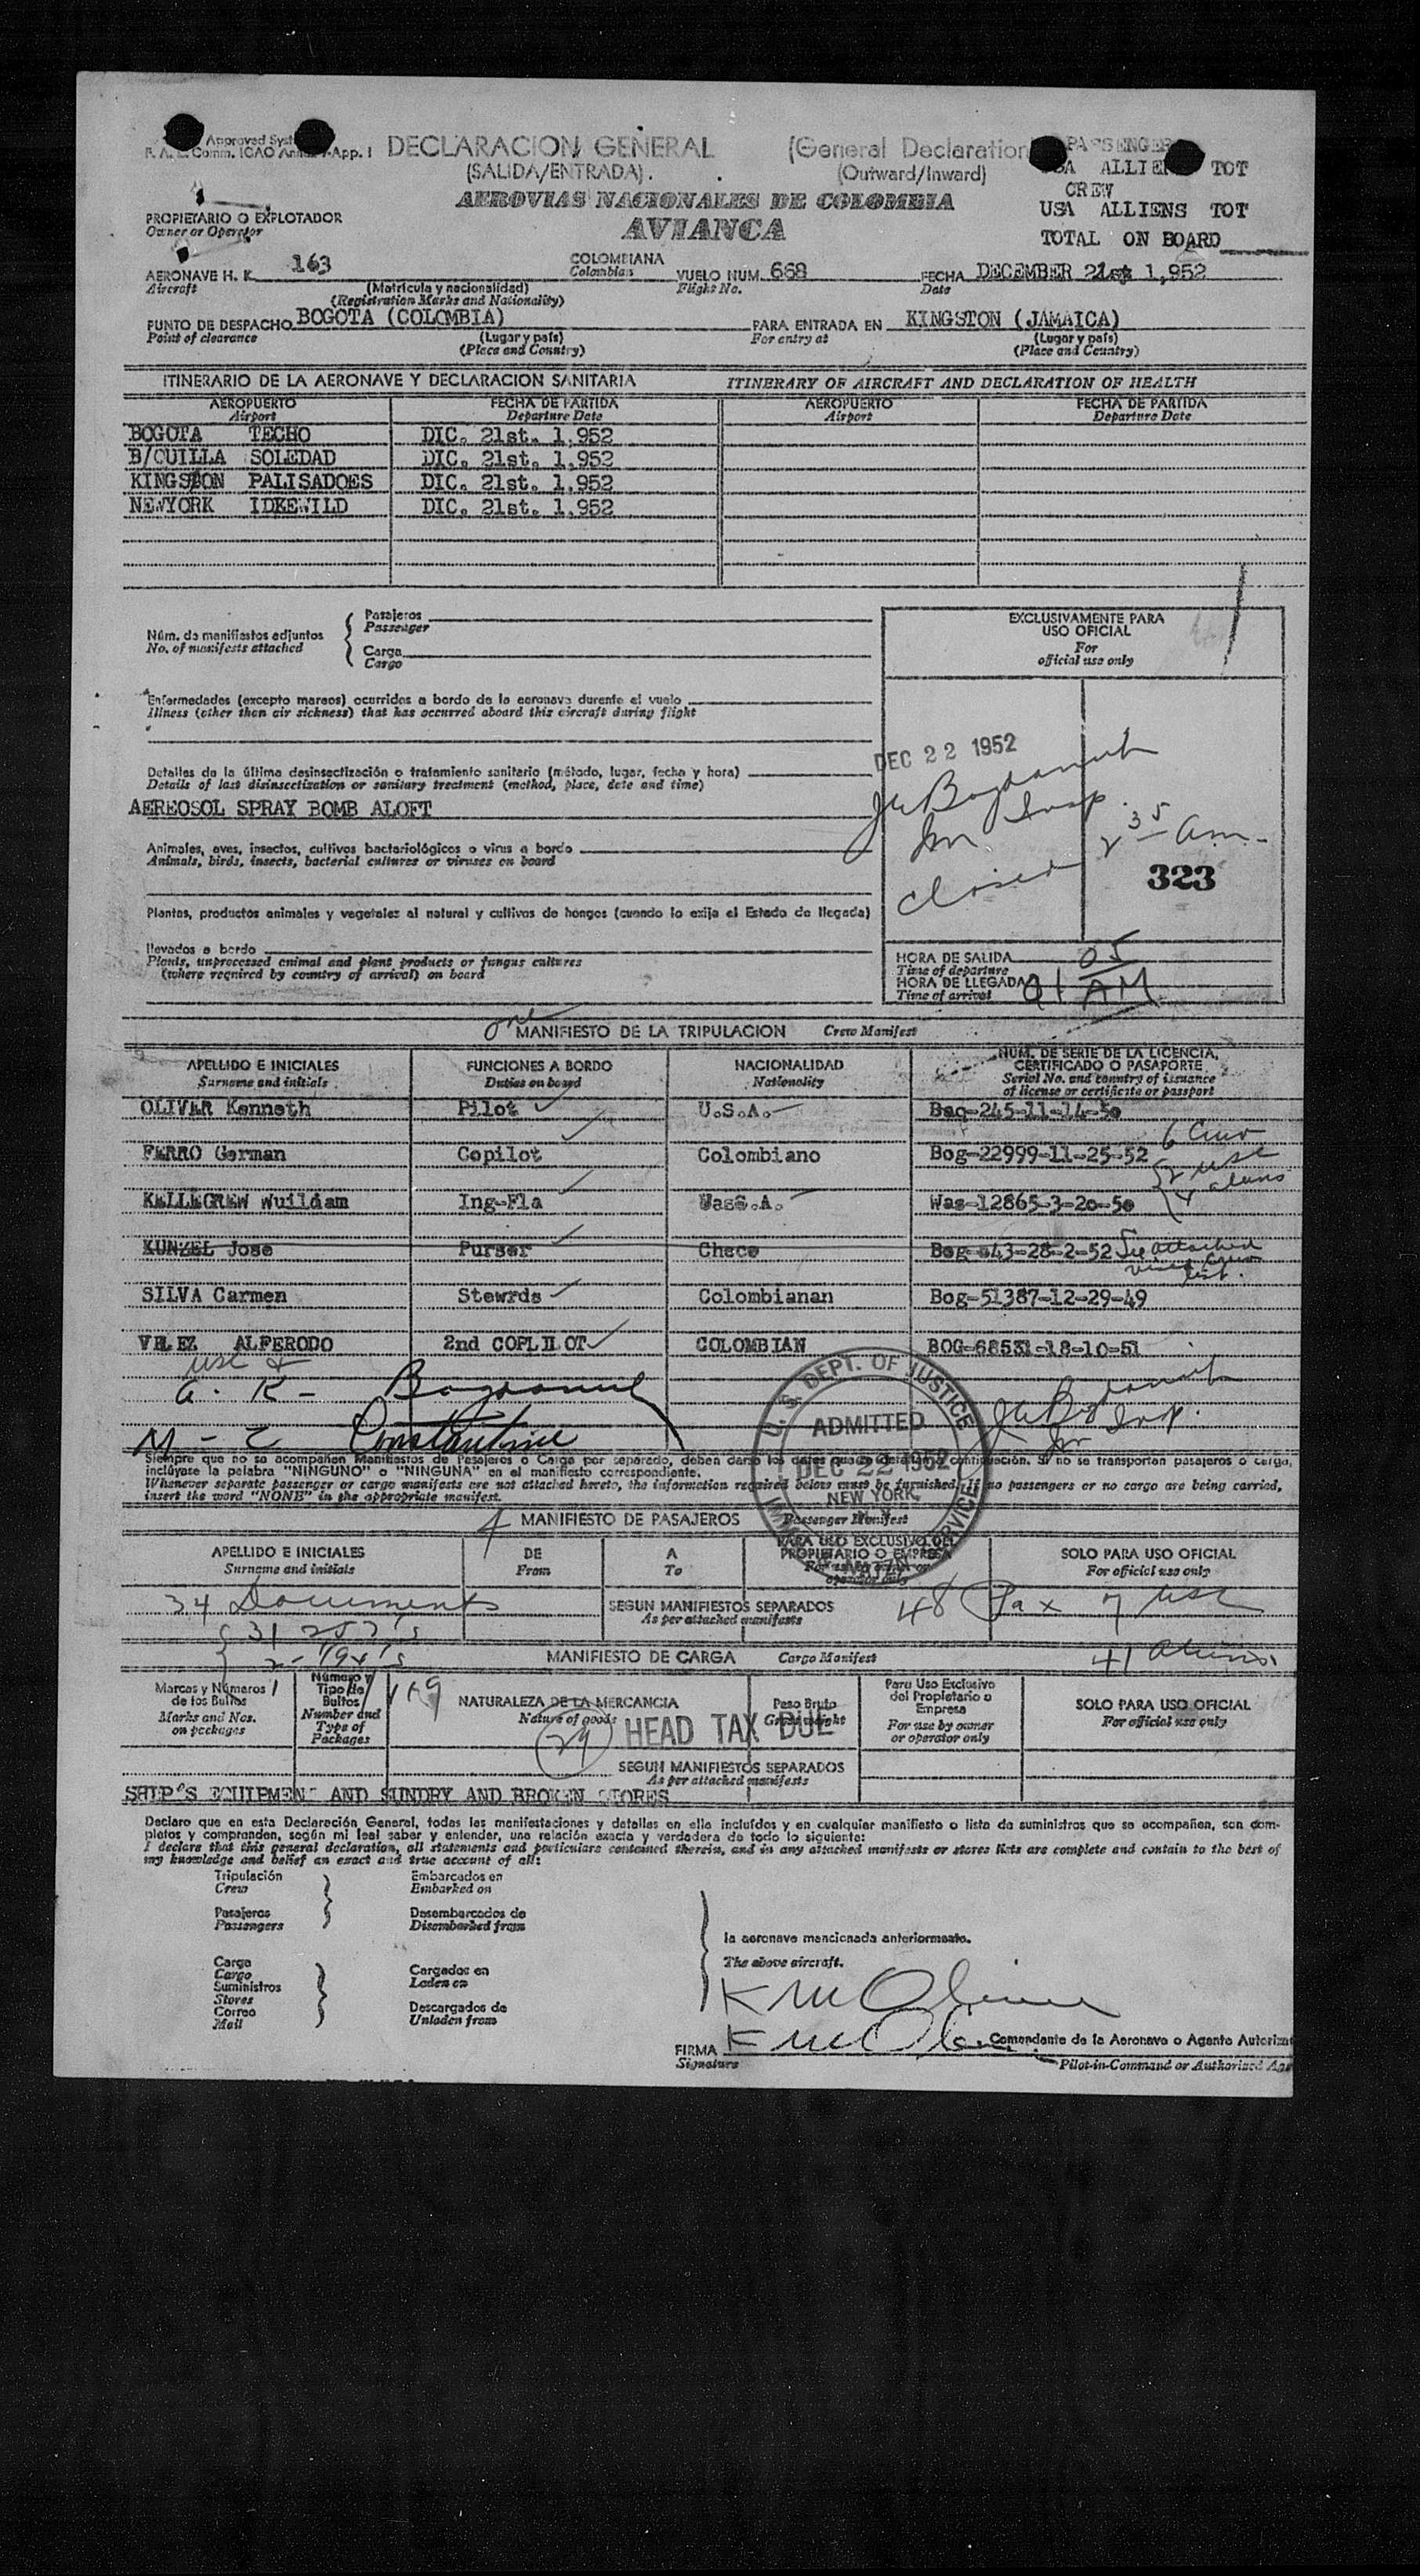 Approved Syst
Comm. ICAO Annex App. I
DECLARACION GENERAL (General Declaration
(SALIDA/ENTRADA). (Outward/Inward)
PASSENGER
USA ALLIENS TOT
CREW
USA ALLIENS TOT
TOTAL ON BOARD
AEROVIAS NACIONALES DE COLOMBIA
AVIANCA
PROPIETARIO O EXPLOTADOR
Owner or Operator
AERONAVE H. K. 163 COLOMBIANA VUELO NUM. 668 FECHA DECEMBER 21st 1,952
Aircraft (Matrícula y nacionalidad) Colombian Flight No. Date
(Registration Marks and Nationality)
PUNTO DE DESPACHO BOGOTA (COLOMBIA) PARA ENTRADA EN KINGSTON (JAMAICA)
Point of clearance (Lugar y país) For entry at (Lugar y país)
(Place and Country) (Place and Country)
ITINERARIO DE LA AERONAVE Y DECLARACION SANITARIA ITINERARY OF AIRCRAFT AND DECLARATION OF HEALTH
AEROPUERTO FECHA DE PARTIDA AEROPUERTO FECHA DE PARTIDA
Airport Departure Date Airport Departure Date
BOGOTA TECHO DIC. 21st. 1.952
B/QUILLA SOLEDAD DIC. 21st. 1.952
KINGSTON PALISADOES DIC. 21st. 1.952
NEWYORK IDLEWILD DIC. 21st. 1.952
Núm. de manifiestos adjuntos
No. of manifests attached
Pasajeros
Passenger
Carga
Cargo
EXCLUSIVAMENTE PARA
USO OFICIAL
For
official use only
Enfermedades (excepto mareos) ocurridas a bordo de la aeronave durante el vuelo
Illness (other than air sickness) that has occurred aboard this aircraft during flight
DEC 22 1952
Detalles de la última desinsectización o tratamiento sanitario (método, lugar, fecha y hora)
Details of last disinsectization or sanitary treatment (method, place, date and time)
AEREOSOL SPRAY BOMB ALOFT
Im Insp.
closed 2 35 am.
323
Animales, aves, insectos, cultivos bacteriológicos o virus a bordo
Animals, birds, insects, bacterial cultures or viruses on board
Plantas, productos animales y vegetales al natural y cultivos de hongos (cuando lo exija el Estado de llegada)
llevados a bordo
Plants, unprocessed animal and plant products or fungus cultures
(where required by country of arrival) on board
HORA DE SALIDA
Time of departure
HORA DE LLEGADA 01 05 AM
Time of arrival
one MANIFIESTO DE LA TRIPULACION Crew Manifest
APELLIDO E INICIALES FUNCIONES A BORDO NACIONALIDAD NUM. DE SERIE DE LA LICENCIA,
CERTIFICADO O PASAPORTE
Surname and initials Duties on board Nationality Serial No. and country of issuance
of license or certificate or passport
OLIVAR Kenneth Pilot U.S.A. Baq-245-11-14-50
FERRO German Copilot Colombiano Bog-22999-11-25-52
6 Crew
2 USC
4 aliens
KELLEGREW Wuildam Ing-Fla UasS.A. Was-12865-3-20-50
KUNZEL Jose Purser Checo Bog-43-28-2-52 See attached
visaed crew list.
SILVA Carmen Stewrds Colombianan Bog-51387-12-29-49
VELEZ ALFERODO 2nd COPLILOT COLOMBIAN BOG-68531-18-10-51
USC &
A. K - Bogdanick
M - Z Constantine
U. S. DEPT. OF JUSTICE
ADMITTED
DEC 22 1952
NEW YORK, N. Y.
Siempre que no se acompañen Manifiestos de Pasajeros o Carga por separado, deben darse los datos que se detallan a continuación. Si no se transportan pasajeros o carga,
inclúyase la palabra "NINGUNO" o "NINGUNA" en el manifiesto correspondiente.
Whenever separate passenger or cargo manifests are not attached hereto, the information required below must be furnished. If no passengers or no cargo are being carried,
insert the word "NONE" in the appropriate manifest.
4 MANIFIESTO DE PASAJEROS Passenger Manifest
APELLIDO E INICIALES DE A PARA USO EXCLUSIVO DEL
PROPIETARIO O EMPRESA SOLO PARA USO OFICIAL
Surname and initials From To operator only For official use only
34 Documents SEGUN MANIFIESTOS SEPARADOS 48 Pax 7 USC
As per attached manifests
31 257's
2 - 194's MANIFIESTO DE CARGA Cargo Manifest 41 aliens
Marcas y Números
de los Bultos
Marks and Nos.
on packages
Número y
Tipo de
Bultos
Number and
Type of
Packages
NATURALEZA DE LA MERCANCIA
Nature of goods
Peso Bruto
Gross weight
Para Uso Exclusivo
del Propietario o
Empresa
For use by owner
or operator only
SOLO PARA USO OFICIAL
For official use only
29 HEAD TAX DUE
SEGUN MANIFIESTOS SEPARADOS
As per attached manifests
SHIP'S EQUIPMENT AND SUNDRY AND BROKEN STORES
Declaro que en esta Declaración General, todas las manifestaciones y detalles en ella incluídos y en cualquier manifiesto o lista de suministros que se acompañan, son com-
pletos y comprenden, según mi leal saber y entender, una relación exacta y verdadera de todo lo siguiente:
I declare that this general declaration, all statements and particulars contained therein, and in any attached manifests or stores lists are complete and contain to the best of
my knowledge and belief an exact and true account of all:
Tripulación Embarcados en
Crew Embarked on
Pasajeros Desembarcados de
Passengers Disembarked from
la aeronave mencionada anteriormente.
The above aircraft.
Carga
Cargo
Suministros
Stores
Correo
Mail
Cargados en
Laden on
Descargados de
Unladen from
FIRMA Comandante de la Aeronave o Agente Autorizad
Signature Pilot-in-Command or Authorized Age